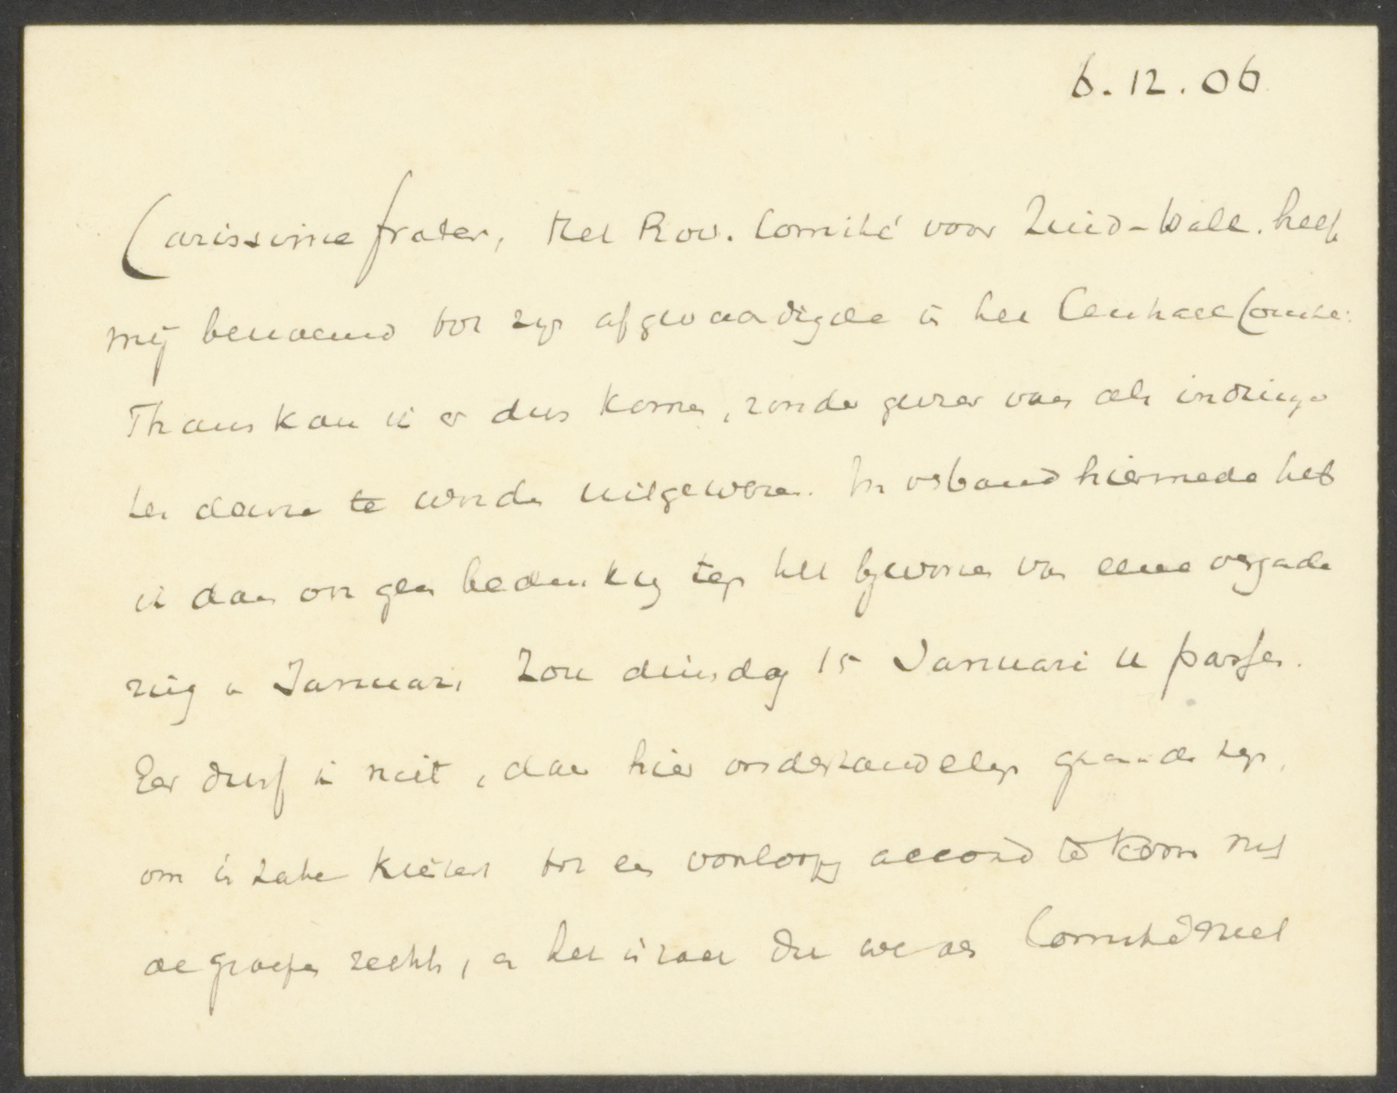 6.12.06
Carissime frater, Het Prov. Comité voor Zuid-Holl. heeft
mij benoemd tot zijn afgevaardigde in het Centraal Comité.
Thans kan ik er dus komen, zonder gevaar van als indringer
de deur te worden uitgewezen. In verband hiermede heb
ik dan ook geen bedenking tegen het bijwonen van eene vergade
ring in Januari. Zou dinsdag 15 Januari u passen.
Eer durf ik niet, daar hier onderhandelingen gaande zijn,
om in zake kiesrecht tot een voorloopig accoord te komen met
de groepen rechts, en het is zaak dat we als Comité niet